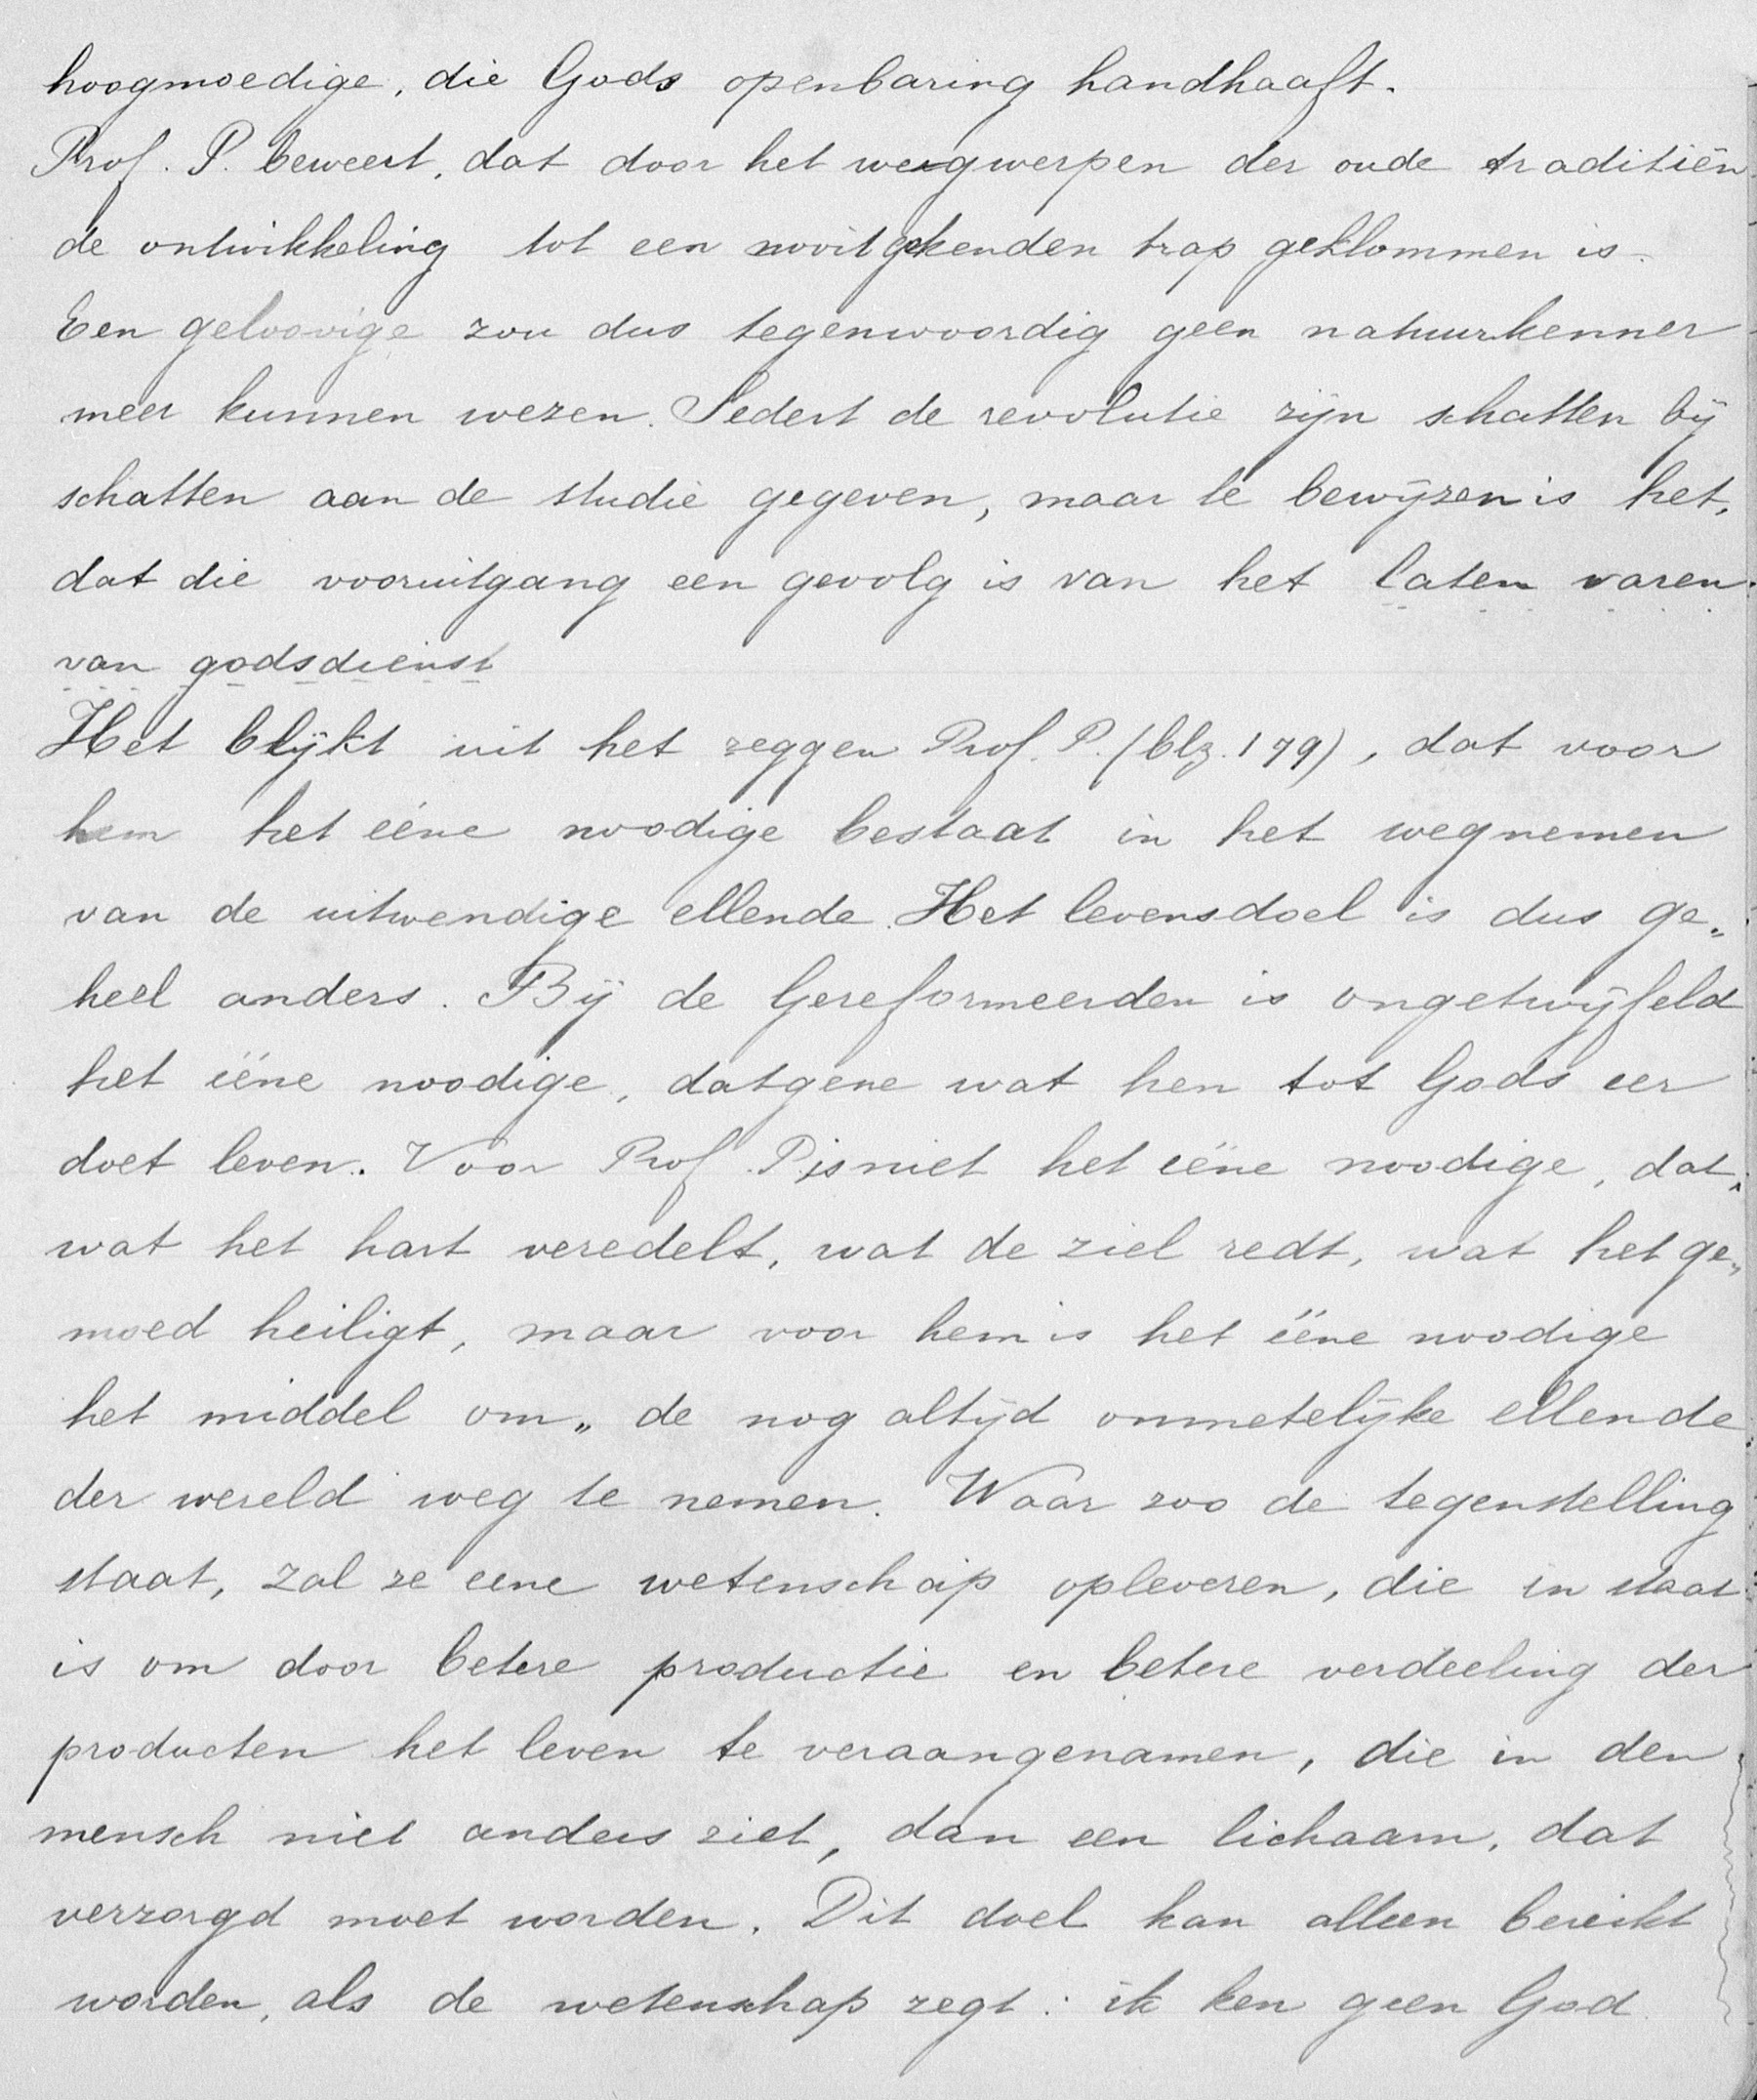 hoogmoedige, die Gods openbaring handhaaft.
Prof. P. beweert, dat door het wegwerpen der oude traditiën
de ontwikkeling tot een nooit gekenden trap geklommen is.
Een geloovige zou dus tegenwoordig geen natuurkenner
meer kunnen wezen. Sedert de revolutie zijn schatten bij
schatten aan de studie gegeven, maar te bewijzen is het,
dat die vooruitgang een gevolg is van het laten varen
van godsdienst
Het blijkt uit het zeggen Prof. P. (blz. 179), dat voor
hem het ééne noodige bestaat in het wegnemen
van de uitwendige ellende. Het levensdoel is dus ge„
heel anders. Bij de Gereformeerden is ongetwijfeld
het ééne noodige, datgene wat hen tot Gods eer
doet leven. Voor Prof. P. is niet het ééne noodige, dat,
wat het hart veredelt, wat de ziel redt, wat het ge„
moed heiligt, maar voor hem is het ééne noodige
het middel om „de nog altijd onmetelijke ellende
der wereld weg te nemen. Waar zoo de tegenstelling
staat, zal ze eene wetenschap opleveren, die in staat
is om door betere productie en betere verdeeling der
producten het leven te veraangenamen, die in den
mensch niet anders ziet, dan een lichaam, dat
verzorgd moet worden. Dit doel kan alleen bereikt
worden, als de wetenschap zegt: ik ken geen God